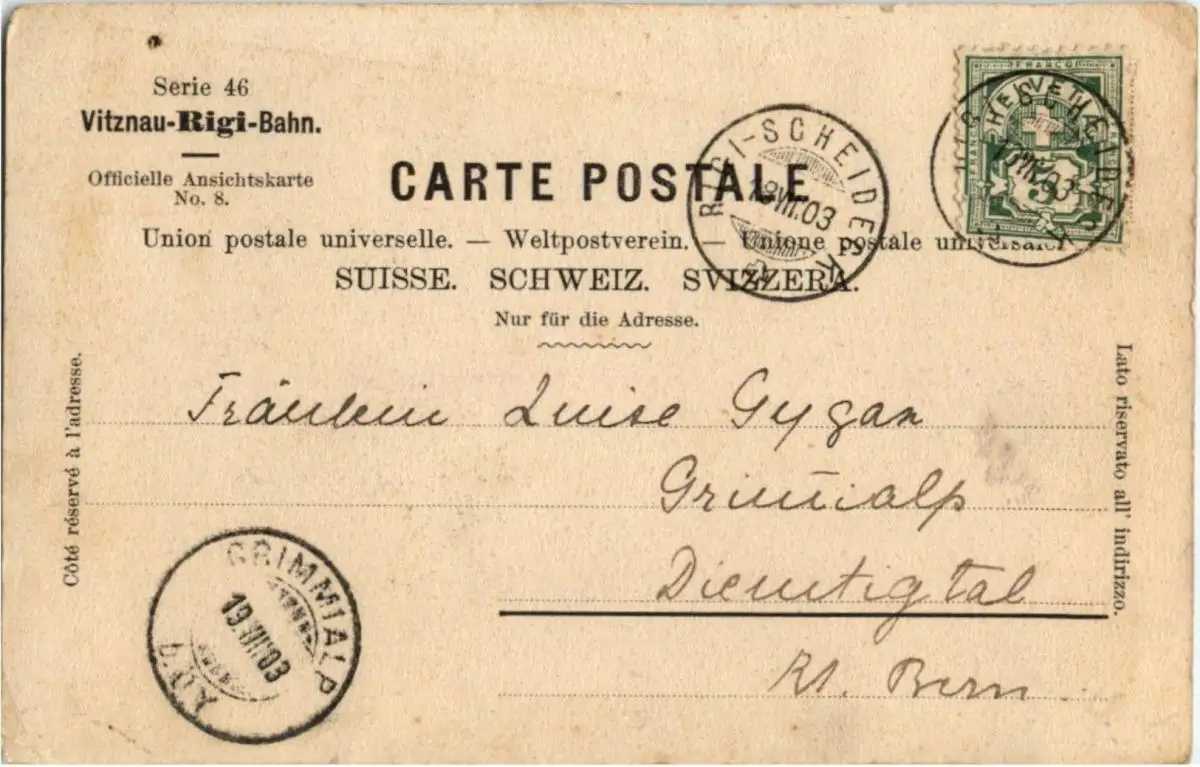 Serie 46
Vitznau-Rigi-Bahn.
Officielle Ansichtskarte
No. 8.
FRANCO
HELVETIA
5
RIGI-SCHEIDECK
CARTE POSTALE
RIGI-SCHEIDECK
18.VII.03
Union postale universelle. — Weltpostverein. — Unione postale universale.
SUISSE. SCHWEIZ. SVIZZERA.
Nur für die Adresse.
Côté réservé à l'adresse.
Lato riservato all' indirizzo.
Fräulein Luise Gygax
Grim̅ialp
Diemtigtal
Kt. Bern
GRIMMIALP
19.VII.03